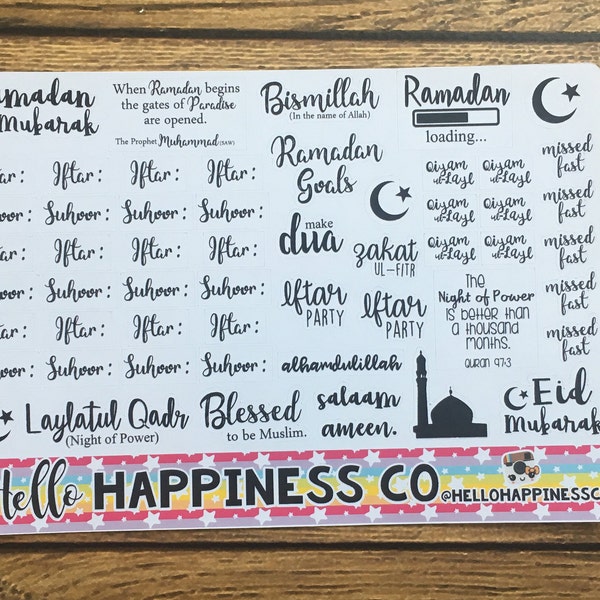 Ramadan
Mubarak
When Ramadan begins
the gates of Paradise
are opened.
The Prophet Muhammad (SAW)
Bismillah
(In the name of Allah)
Ramadan
loading...
Ramadan
Goals
Iftar: Iftar: Iftar: Iftar:
Suhoor: Suhoor: Suhoor: Suhoor:
Iftar: Iftar: Iftar: Iftar:
Suhoor: Suhoor: Suhoor: Suhoor:
Iftar: Iftar: Iftar: Iftar:
Suhoor: Suhoor: Suhoor: Suhoor:
make
dua
zakat
UL-FITR
Iftar
PARTY
Iftar
PARTY
Qiyam
ul-Layl
Qiyam
ul-Layl
Qiyam
ul-Layl
Qiyam
ul-Layl
Qiyam
ul-Layl
Qiyam
ul-Layl
missed
fast
missed
fast
missed
fast
missed
fast
missed
fast
The
Night of Power
is better than
a thousand
months.
Quran 97:3
alhamdulillah
Laylatul Qadr
(Night of Power)
Blessed
to be Muslim.
salaam
ameen.
Eid
Mubarak
Hello HAPPINESS CO @HELLOHAPPINESSC